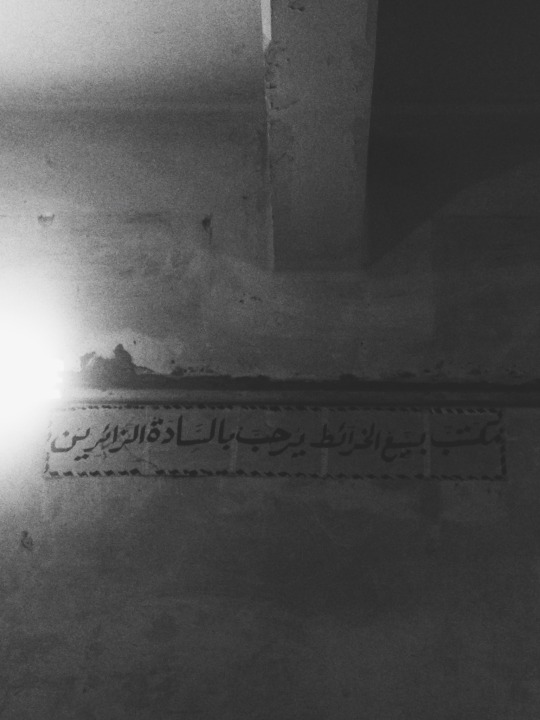 مكتب بيع الخرائط يرحب بالسادة الزائرين